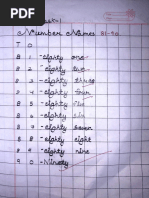 Number Names 81-90
T O
8 1 - eighty one
8 2 - eighty two
8 3 - eighty three
8 4 - eighty four
8 5 - eighty five
8 6 - eighty six
8 7 - eighty seven
8 8 - eighty eight
8 9 - eighty nine
9 0 - Ninety